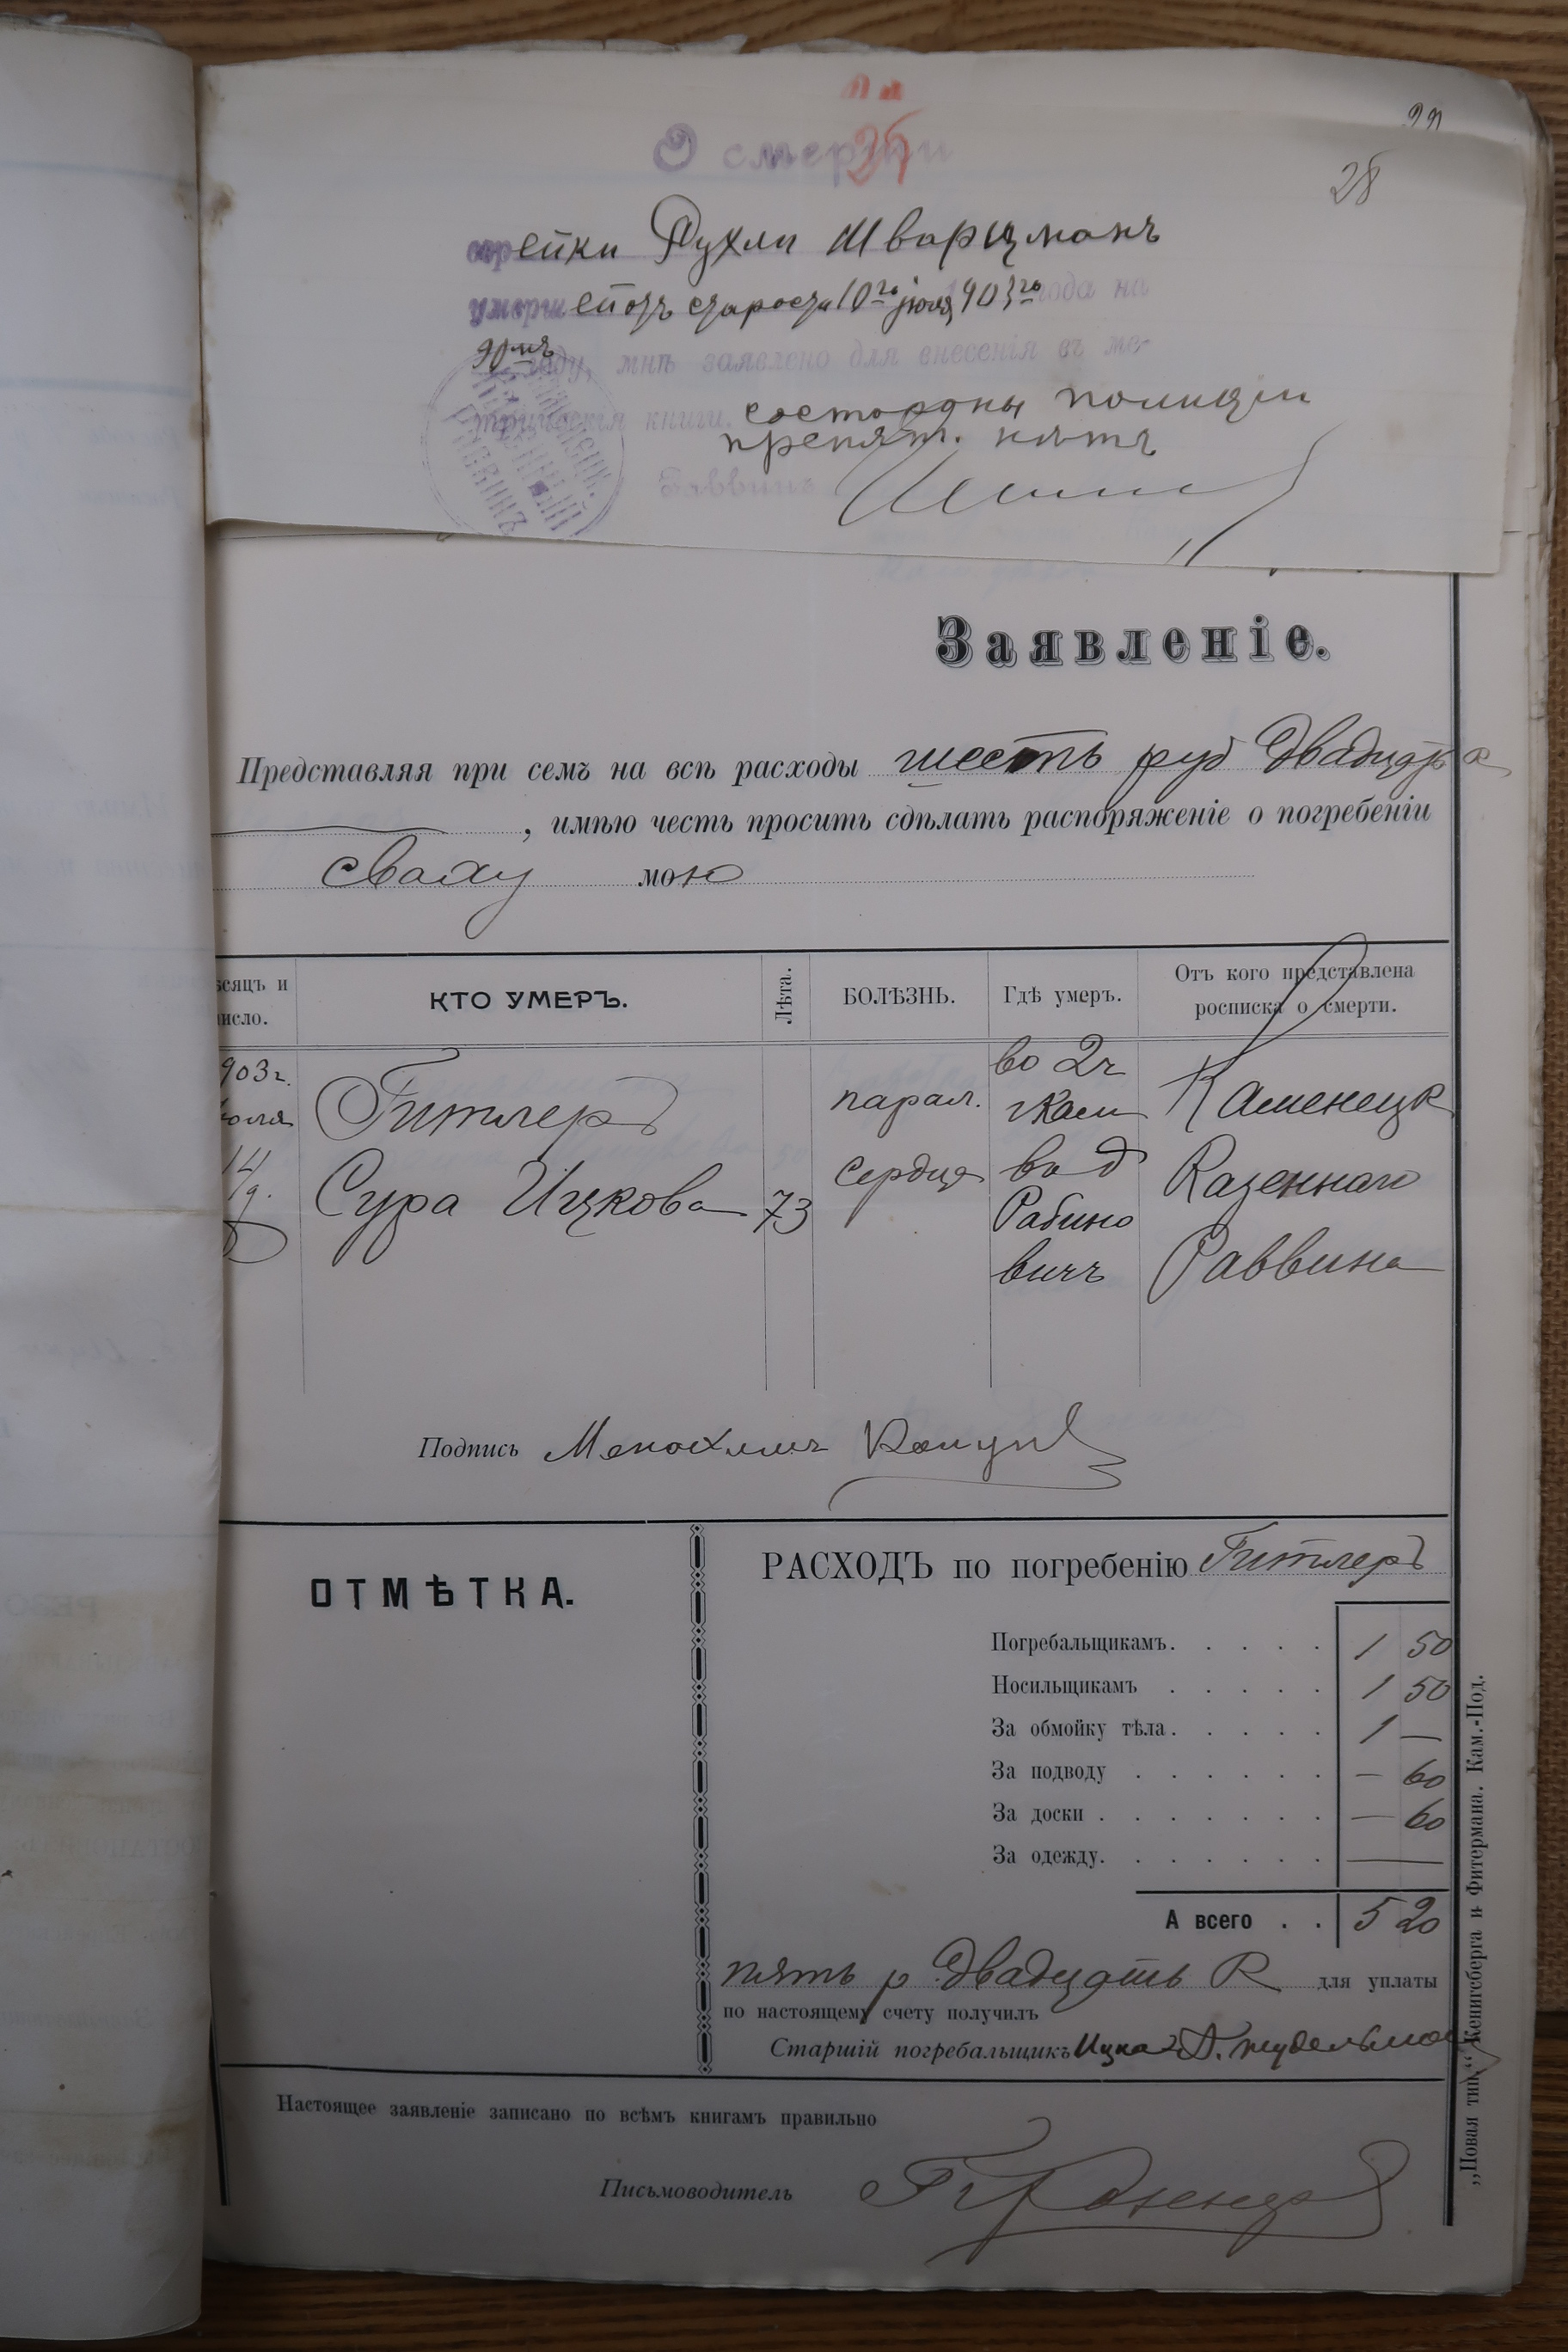 О смерти
26
28
еврейки Рухли Шварцманъ
умершей отъ старости 10го июля 903го года на
90мъ году, мнѣ заявлено для внесенія въ ме-
трическія книги. состороны полиціи
препят. нѣтъ
Раввинъ
Заявленіе.
Представляя при семъ на всѣ расходы шесть руб Двадцать к
, имѣю честь просить сдѣлать распоряженіе о погребеніи
сваху мою
ѣсяцъ и число.
КТО УМЕРЪ.
Лѣта.
БОЛѢЗНЬ.
Гдѣ умеръ.
Отъ кого представлена росписка о смерти.
903г.
юля
14
Гитлеръ
Сура Ицкова
73
парал.
сердца
во 2ч
гКам
во д
Рабино
вичъ
Каменецк
Казеннаго
Раввина
Подпись
ОТМѢТКА.
РАСХОДЪ по погребенію Гитлеръ
Погребальщикамъ. . . . . 1 50
Носильщикамъ . . . . . 1 50
За обмойку тѣла. . . . . 1 —
За подводу . . . . . . — 60
За доски . . . . . . . — 60
За одежду. . . . . . . —
А всего . . 5 20
пять р Двадцать К для уплаты
по настоящему счету получилъ
Старшій погребальщикъ Ицка
Настоящее заявленіе записано по всѣмъ книгамъ правильно
Письмоводитель
„Новая тип.“ Кенигсберга и Фитермана. Кам.-Под.